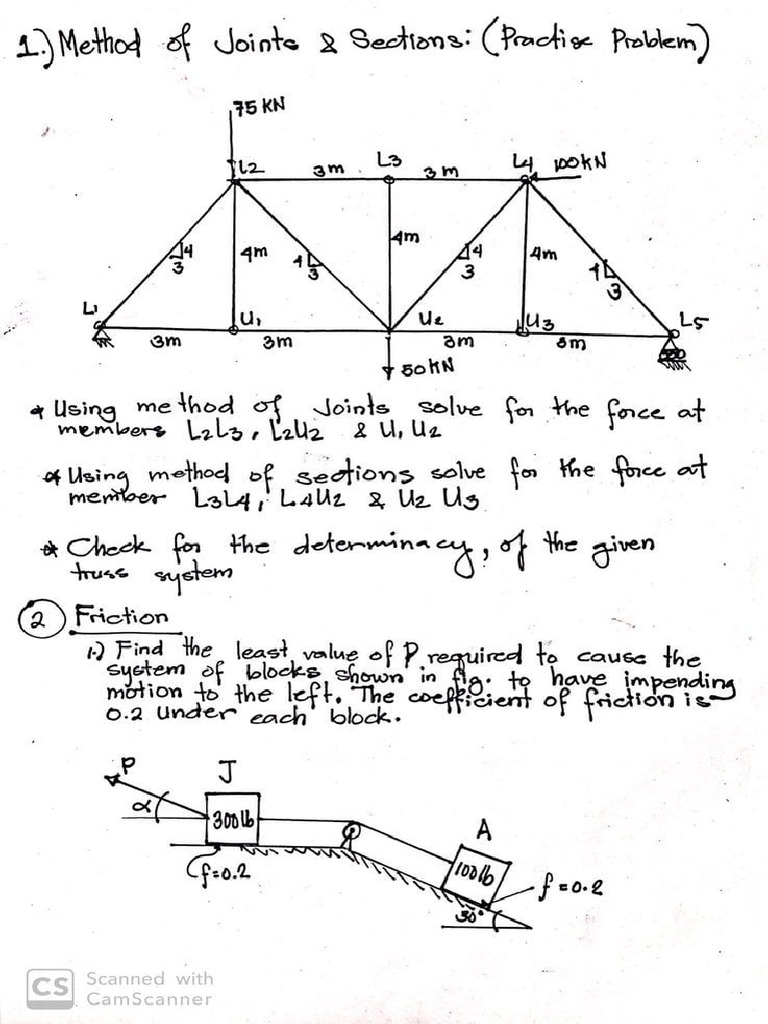 1.) Method of Joints & Sections: (Practise Problem)
75 KN
L2 3m L3 3m L4 100KN
4 3 4m 4 3 4m 4 3 4m 4 3
L1 U1 U2 U3 L5
3m 3m 3m 3m
50KN
* Using method of Joints solve for the force at
members L2L3, L2U2 & U1 U2
* Using method of sections solve for the force at
member L3L4, L4U2 & U2 U3
* Check for the determinacy, of the given
truss system
2 Friction
1.) Find the least value of P required to cause the
system of blocks shown in fig. to have impending
motion to the left. The coefficient of friction is
0.2 under each block.
P J
α 300lb A
f=0.2 100lb f=0.2
30°
CS Scanned with
CamScanner